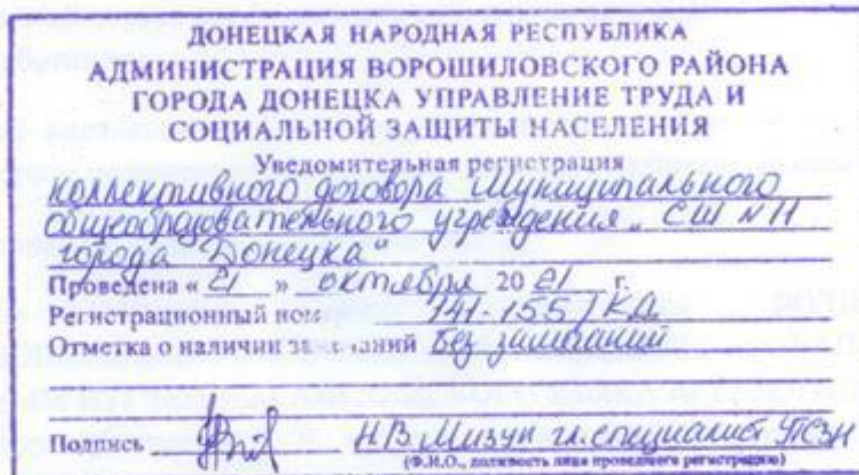 ДОНЕЦКАЯ НАРОДНАЯ РЕСПУБЛИКА
АДМИНИСТРАЦИЯ ВОРОШИЛОВСКОГО РАЙОНА
ГОРОДА ДОНЕЦКА УПРАВЛЕНИЕ ТРУДА И
СОЦИАЛЬНОЙ ЗАЩИТЫ НАСЕЛЕНИЯ
Уведомительная регистрация
коллективного договора Муниципального
общеобразовательного учреждения „СШ №11
города Донецка“
Проведена « 21 » октября 20 21 г.
Регистрационный 141-155/КД
Отметка о наличии без замечаний
Подпись Н.В. Мизун гл.специалист УТСЗН
(Ф.И.О., должность лица проведшего регистрацию)